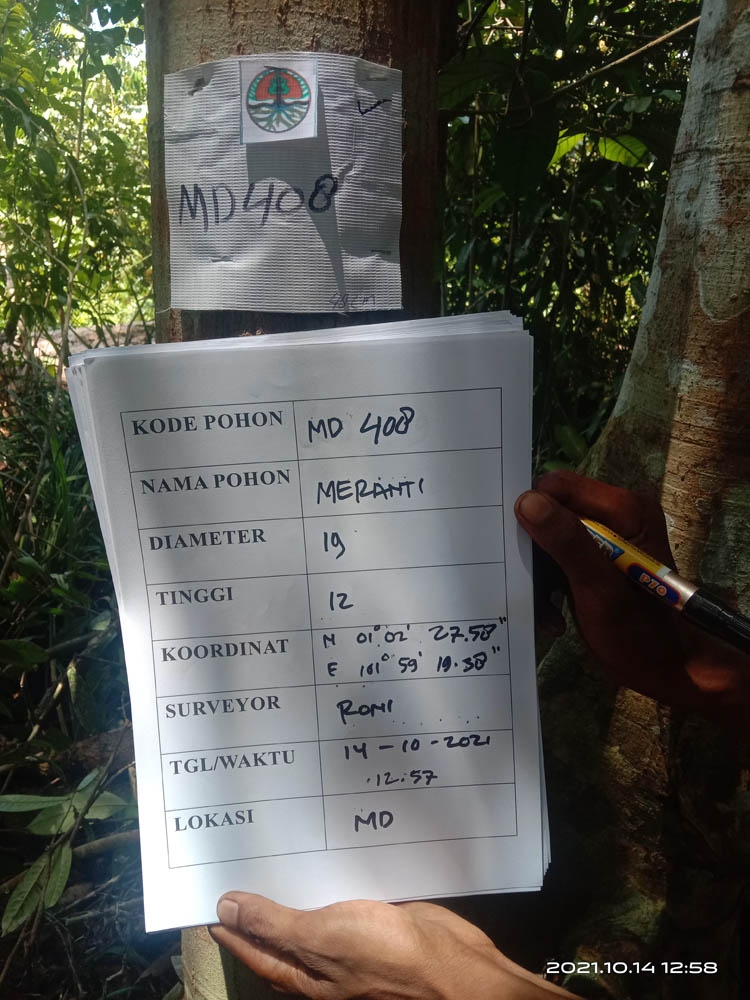 MD 408
KODE POHON MD 408
NAMA POHON MERANTI
DIAMETER 19
TINGGI 12
KOORDINAT N 01° 02' 27.58"
E 101° 59' 19.38"
SURVEYOR ROMI
TGL/WAKTU 14-10-2021
12:57
LOKASI MD
P70
2021.10.14 12:58